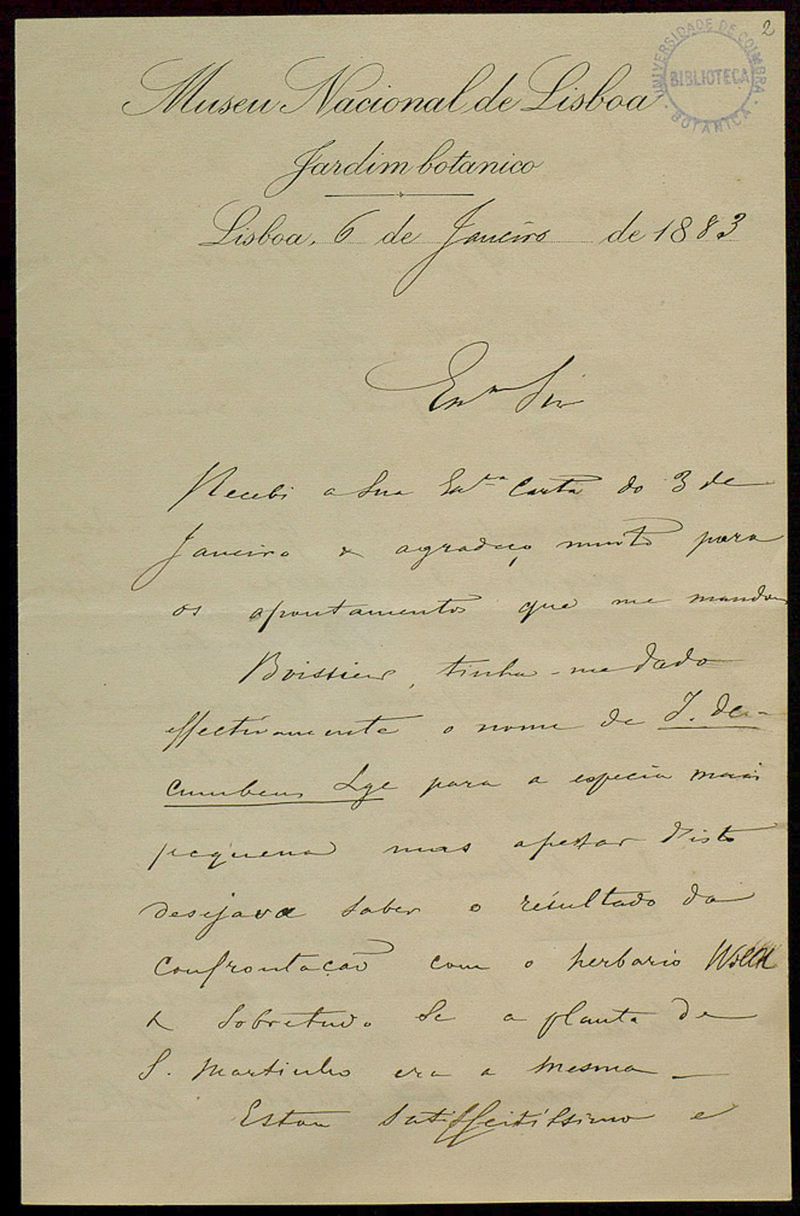 2
UNIVERSIDADE DE COIMBRA
BIBLIOTECA
BOTANICA
Museu Nacional de Lisboa
Jardim botanico
Lisboa, 6 de Janeiro de 1883
Exmo Snr
Recebi a sua Exma carta do 3 de
Janeiro & agradeço muito para
os apontamentos que me mandou
Boissier, tinha-me dado
effectivamente o nome de J. de-
cumbens Lge para a especia mais
pequena mas apesar disto
desejava saber o resultado da
confrontação com o herbario Willk
& sobretudo se a planta de
S. Martinho era a mesma —
Estou satisfeitissimo e